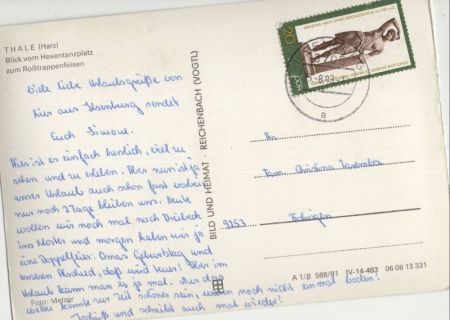 THALE (Harz)
Blick vom Hexentanzplatz
zum Roßtrappenfelsen
Viele liebe Urlaubsgrüße von
hier aus Ilsenburg sendet
Euch Simone.
Hier ist es einfach herrlich, viel zu
sehen und zu erleben. Aber nun ist ja
unser Urlaub auch schon fast vorbei
nur noch 2 Tage bleiben uns. Heute
wollen wir noch mal nach Drübeck
ins Kloster und morgen haben wir ja
ein Doppelfeier: Omas Geburtstag und
unseren Abschied, das wird was! Aber im
Urlaub kann man es ja mal. Nur das
Wetter könnte zur Zeit schöner sein, waren noch nicht einmal baden!
Tschüß und schreibt auch mal wieder!
Foto: Melzer
BILD UND HEIMAT · REICHENBACH (VOGTL)
20
DDR
a
An
Fam. Christina
9253
A 1/B 588/81 IV-14-483 06 08 13 331